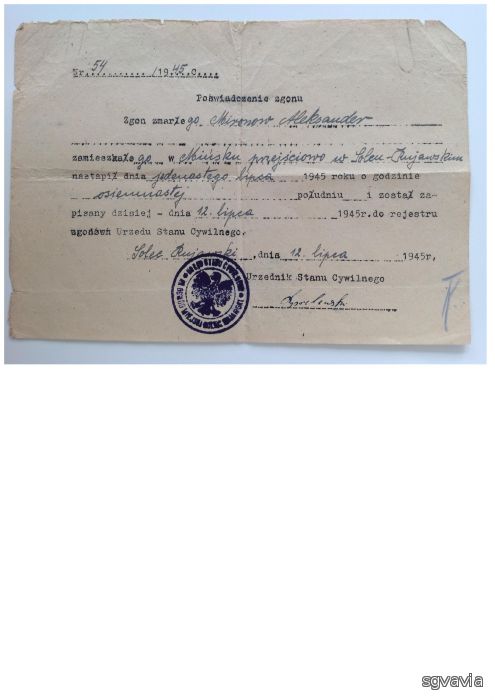 Nr. 54 /1945 C.
Poświadczenie zgonu
Zgon zmarłego Mironow Aleksander
zamieszkałego w Mińsku przejściowo w Solcu-Kujawskim
nastąpił dnia jedenastego lipca 1945 roku o godzinie
osiemnastej południu i został za-
pisany dzisiej - dnia 12. lipca 1945r. do rejestru
Urzedu Stanu Cywilnego.
Solec Kujawski, dnia 12 lipca 1945r,
Urzednik Stanu Cywilnego
sgvavia